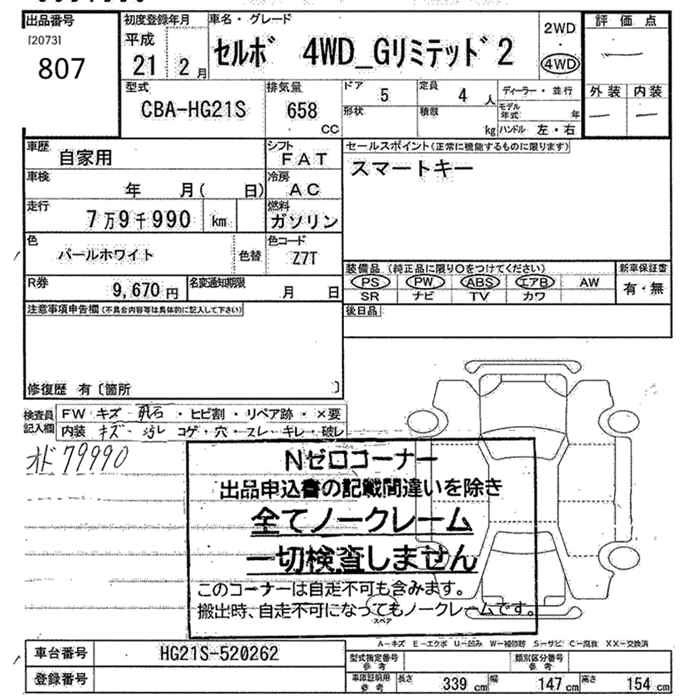 出品番号 初度登録年月 車名・グレード 2WD ・ 4WD 評価点
[2073] 807 平成 21 2月 セルボ 4WD_Gリミテッド2
型式 CBA-HG21S 排気量 658 CC ドア 5 定員 4 人 ディーラー・並行 外装 内装
形状 積載 kg モデル年式 年 ハンドル 左・右
車歴 自家用 シフト FAT セールスポイント(正常に機能するものに限ります)
車検 年 月( 日) 冷房 AC スマートキー
走行 7万9千990 km 燃料 ガソリン
色 パールホワイト 色替 色コード Z7T
装備品(純正品に限り○をつけてください) 新車保証書
R券 9,670円 名変通知期限 月 日 PS PW ABS エアB AW 有・無
SR ナビ TV カワ
注意事項申告欄(不具合内容等は具体的に記入して下さい) 後日品
修復歴 有〔箇所 〕
検査員記入欄 FW キズ・飛石・ヒビ割・リペア跡・×要
内装 キズ・汚レ コゲ・穴・スレ・キレ・破レ
オド79990
Nゼロコーナー
出品申込書の記載間違いを除き
全てノークレーム
一切検査しません
このコーナーは自走不可も含みます。
搬出時、自走不可になってもノークレームです。
スペア
A-キズ E-エクボ U-凹み W-補修跡 S-サビ C-腐食 XX-交換済
車台番号 HG21S-520262 型式指定番号 参考 類別区分番号 参考
登録番号 車庫証明用 参考 長さ 339 cm 幅 147 cm 高さ 154 cm